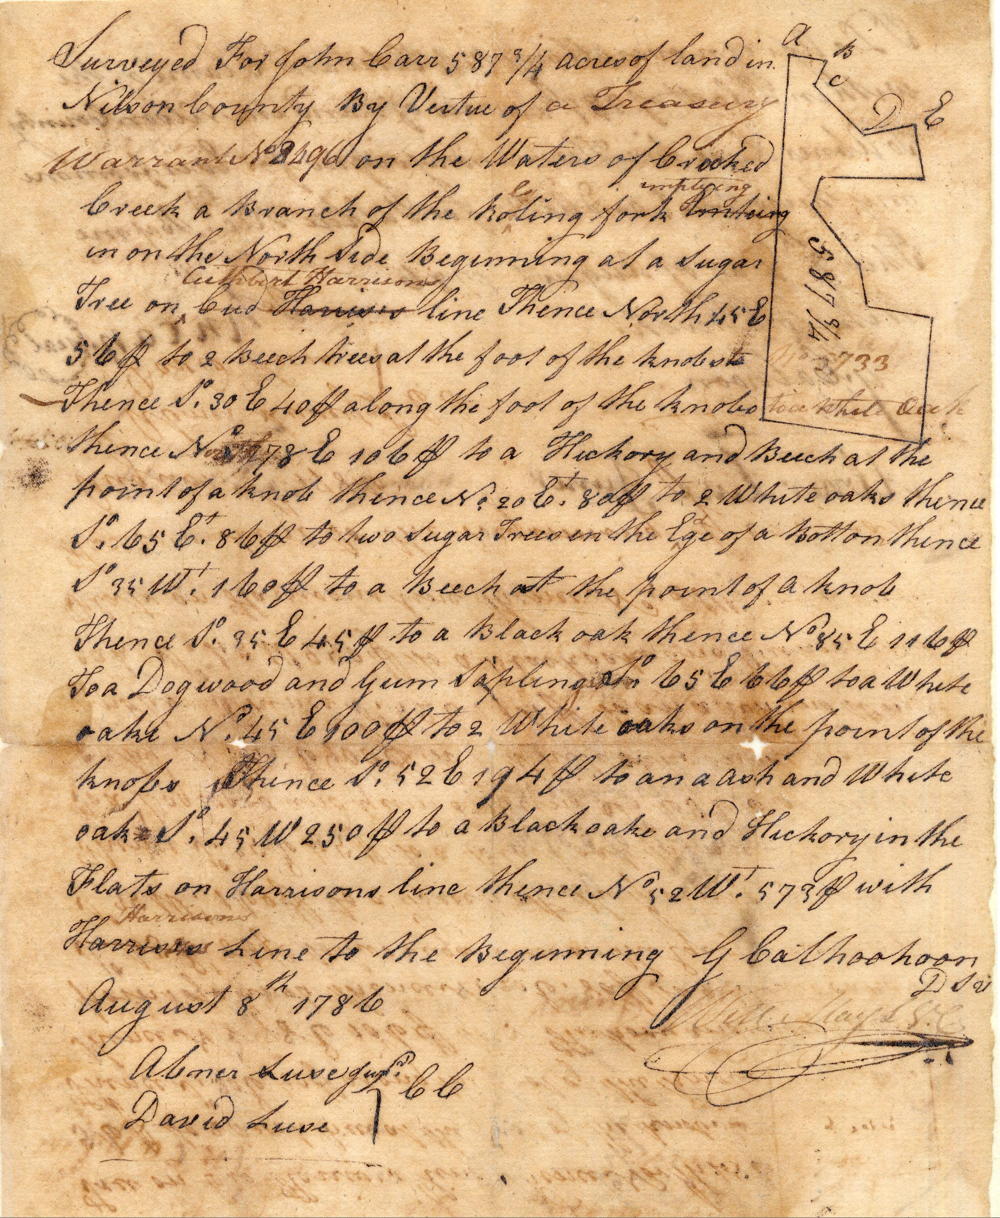 Surveyed For John Carr 587 3/4 acres of land in
Nilson County By Vertue of a Treasury
Warrant No 2496 on the Waters of Crooked
impteing
Creek a Branch of the Roling fork
in on the North Side Beginning at a Sugar
Cuthbert Harrisons
Tree on Cud Harrises line Thence North 45 E
56 ps to 2 Beech trees at the foot of the knobs
Thence So. 30 E 40 ps along the foot of the knobs to a White Oak
thence No 78 E 106 ps to a Hickory and Beech at the
point of a knob thence No. 20 Et. 80 ps to 2 White oaks thence
So. 65 Et. 86 ps to two Sugar Trees in the Ege of a Botton thence
So 35 Wt. 160 ps to a Beech at the point of a knob
Thence So. 35 E 45 ps to a Black oak thence No 85 E 116 ps
To a Dogwood and Gum Sapling So. 65 E 66 ps to a White
oake No. 45 E 100 ps to 2 White oaks on the point of the
knobs Thence So. 52 E 194 ps to an a ash and White
oak So. 45 W 250 ps to a Black oake and Hickory in the
Flats on Harrisons line thence No 52 Wt. 573 ps with
Harrisons
Harrises Line to the Beginning G Calhoohoon
D S
August 8th 1786
Will May
Abner Luse
C C
David Luse
a
B
C
D E
587 3/4
733